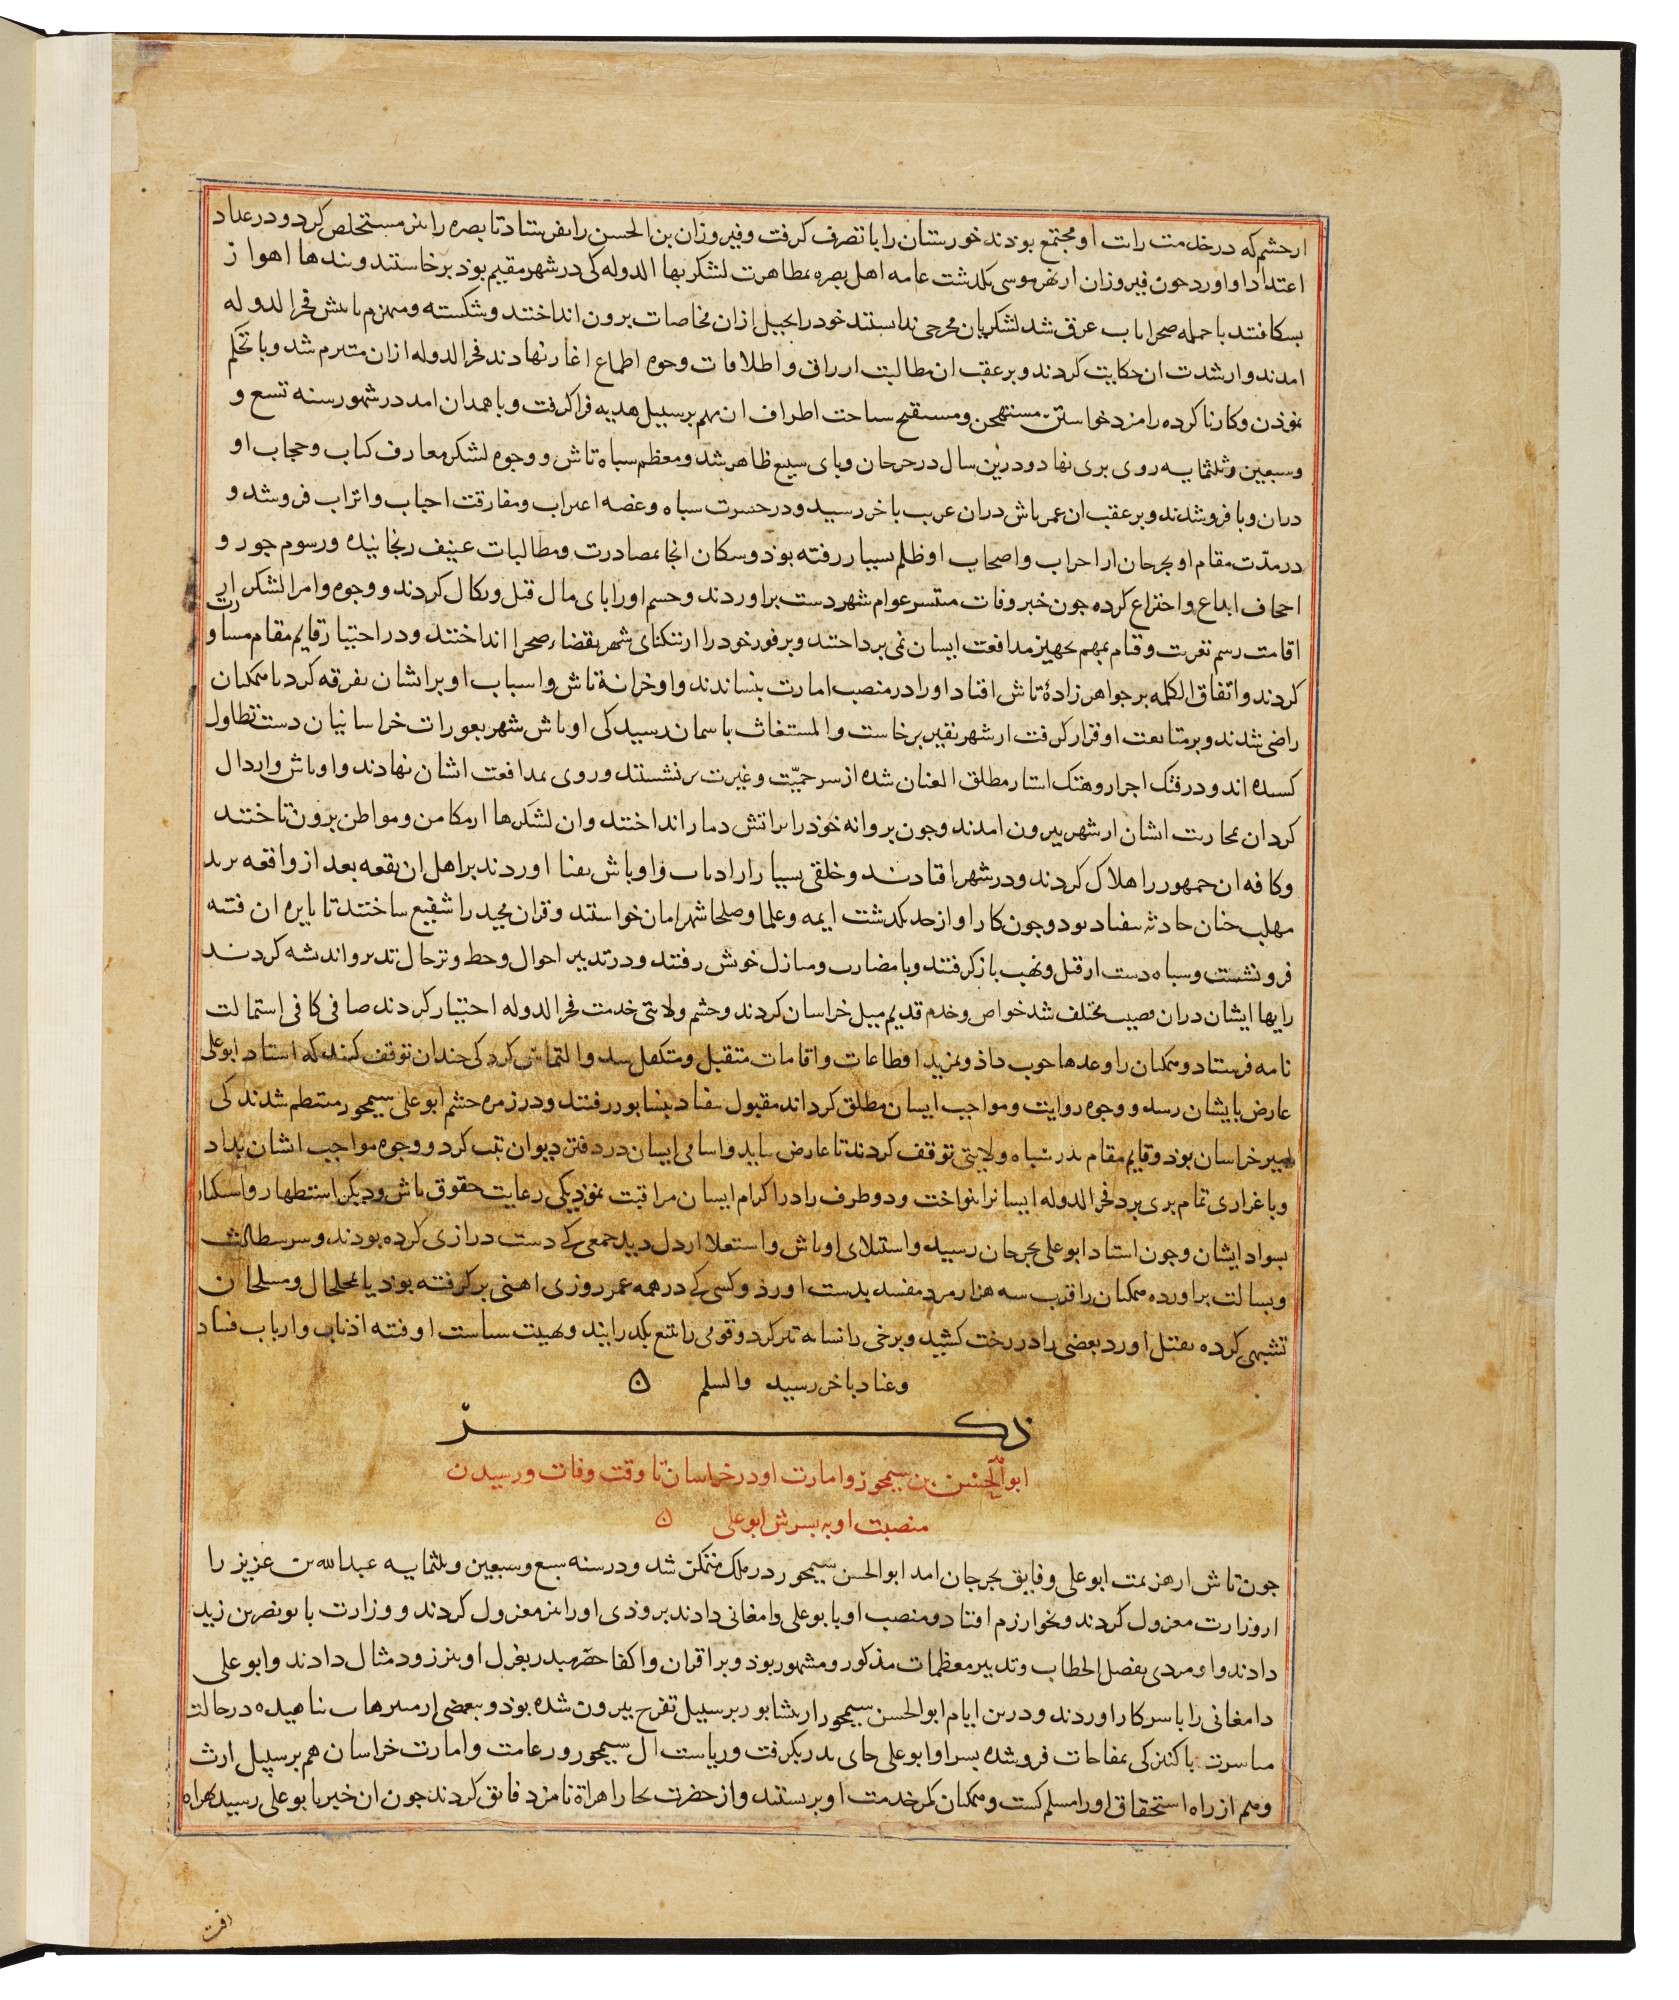 ارحشم که در خدمت رایت او مجتمع بودند خورستان را باتصرف کرفت و فیروزان بن الحسن را بفرستاد تا بصره را نیز مستخلص کرد و در عداد
اعتداد او اورد جون فیروزان از نهر موسی بکدشت عامه اهل بصره بمظاهرت لشکر بها الدوله کی در شهر مقیم بود برخاستند و بندها اهواز
بسکافتند با جمله صحرا باب غرق شد لشکریان مخرجی نداستند خود را بحیل ازان مخاضات برون انداختند و شکسته و منهزم باپیش فخر الدوله
امدند و از شدت ان حکایت کردند و بر عقب ان مطالبت ارزاق و اطلاقات و حوه اطماع اغاز نهادند فخر الدوله ازان متبرم شد و با تحکم
نموذن و کار ناکرده را مزد خواستن مستهجن و مستقبح ساحت اطراف ان مهم بر سبیل هدیه فرا کرفت و با همدان امد در شهور سنه تسع و
و سبعین و ثلثمایه روی بری نهاد و درین سال در جرحان وبای سیع ظاهر شد و معظم سباه تاش و وجوه لشکر معارف کتاب و حجاب او
دران وبا فرو شدند و بر عقب ان عمر تاش دران غربت باخر رسید و در حسرت سباه و غصه اغتراب و مفارقت احباب و اتراب فرو شد و
در مدّت مقام او بجرحان از احزاب و اصحاب او ظلم بسیار رفته بود و سکان انجا بمصادرت و مطالبات عنیف رنجانیده و رسوم جور و
احجاف ابداع و اختراع کرده جون خبر وفات منتشر عوام شهر دست براوردند و حسم او را بای مال قتل و نکال کردند و وجوه و امرا لشکر از
اقامت رسم تعزیت و قیام بمهم تجهیز مدافعت ایسان نمی برداحتند و بر فور خود را از تنکنای شهر بفضاء صحرا انداختند و در اختیار قایم مقام مشاورت
کردند و اتفاق الکلمه بر جواهر زادهٔ تاش افتاد او را در منصب امارت بنساندند و او خزانهٔ تاش و اسباب او بر ایشان تفرقه کرد تا ممکنان
راضی شدند و بر متابعت او قرار کرفت از شهر نفیر برخاست و المستغاث باسمان رسید کی اوباش شهر بعورات خراسانیان دست تطاول
کسده اند و در فتک اجرار و هتک استار مطلق العنان شده از سر حمیّت و غیرت برنشستند و روی بمدافعت اشان نهادند و اوباش و اردال
کردان بمحاربت اشان از شهر بیرون امدند و جون بروانه خود را بر اتش دمار انداختند و ان لشکرها از مکامن و مواطن برون تاختند
و کافه ان جمهور را هلاک کردند و در شهر افتادند و خلقی بسیار را از ادباب و اوباش بفنا اوردند بر اهل ان بقعه بعد از واقعه یزید
مهلب جنان حادثه نیفتاد بود و جون کار او از حد بکدشت ایمه و علما و صلحا شهر امان خواستند و قران مجید را شفیع ساختند تا نایره ان فتنه
فرو نشست و سباه دست از قتل و نهب باز کرفتند و با مضارب و منازل خوش رفتند و در تدبیر احوال و حط و ترحال تدبر و اندیشه کردند
رایها ایشان دران مصیب مختلف شد خواص و خدم قدیم میل خراسان کردند و حشم ولایتی خدمت فخر الدوله اختیار کردند صافی کافی استمالت
نامه فرستاد و ممکنان را وعدها خوب داذ و بمزید اقطاعات و اقامات متقبل و متکفل شد و التماس کرد کی جندان توقف کنند که استاد ابوعلی
عارض بایشان رسد و وجوه روایت و مواجب ایسان مطلق کرداند مقبول نیفتاد بنشابور رفتند و در زمره حشم ابوعلی سیمجور منتظم شدند کی
امیر خراسان بود و قایم مقام بدر سباه ولایتی توقف کردند تا عارض بیاید و اسامی ایسان در دفتر دیوان ثبت کرد و وجوه مواجب اشان بداد
و باغراری تمام بری برد فخر الدوله ایسانرا بنواخت و دو طرف را در اکرام ایسان مراقبت نموذ یکی رعایت حقوق تاش و دیکر استظهار و استکثار
بسواد ایشان و جون استاد ابوعلی بجرجان رسید و استیلای اوباش و استعلا اردل دید جمعی کی دست درازی کرده بودند و سر بسطالت
و بسالت براورده ممکنان را قرب سه هزار مرد مفسد بدست اورذ و کسی کی در همه عمر روزی اهنی بر کرفته بود یا بخلخال و مسلحان
تشبهی کرده بقتل اورد بعضی را در درخت کشید و برخی را نسانه تیر کرد و قومی را بتیغ بکدرانید و بهیبت سیاست او فتنه اذناب و ارباب فساد
و عناد باخر رسید والسلم ۵
ذکر
ابو الحسن بن سیمجوز و امارت او در خراسان تا وقت وفات و رسیدن
منصبت او به بسرش ابوعلی ۵
جون تاش از هزیمت ابوعلی و فایق بجرجان امد ابوالحسن سیمجور در ملک متمکن شد و در سنه سبع و سبعین و ثلثمایه عبدالله بن عزیز را
از وزارت معزول کردند و بخوارزم افتاد و منصب او با بوعلی دامغانی دادند بروذی او را نیز معزول کردند و وزارت با بونصر بن زید
دادند و او مردی بفصل الخطاب و تدبیر معظمات مذکور و مشهور بود و بر اقران و اکفا حضرت او نیز زود مثال دادند و ابوعلی
دامغانی را با سر کار اوردند و درین ایام ابوالحسن سیمجور از نشابور بر سبیل تفرج بیرون شده بود و بعضی از متنزهات ناهیده در حالت
مباشرت با کنیزکی بمفاجات فرو شده بسر او ابوعلی جای بدر بکرفت و ریاست ال سیمجور و زعامت و امارت خراسان هم بر سبیل ارث
و هم از راه استحقاق او را مسلم کست و ممکنان کمر خدمت او بربستند و از حضرت بخارا هراة نامزد فایق کردند جون ان خبر بابوعلی رسید کهراه